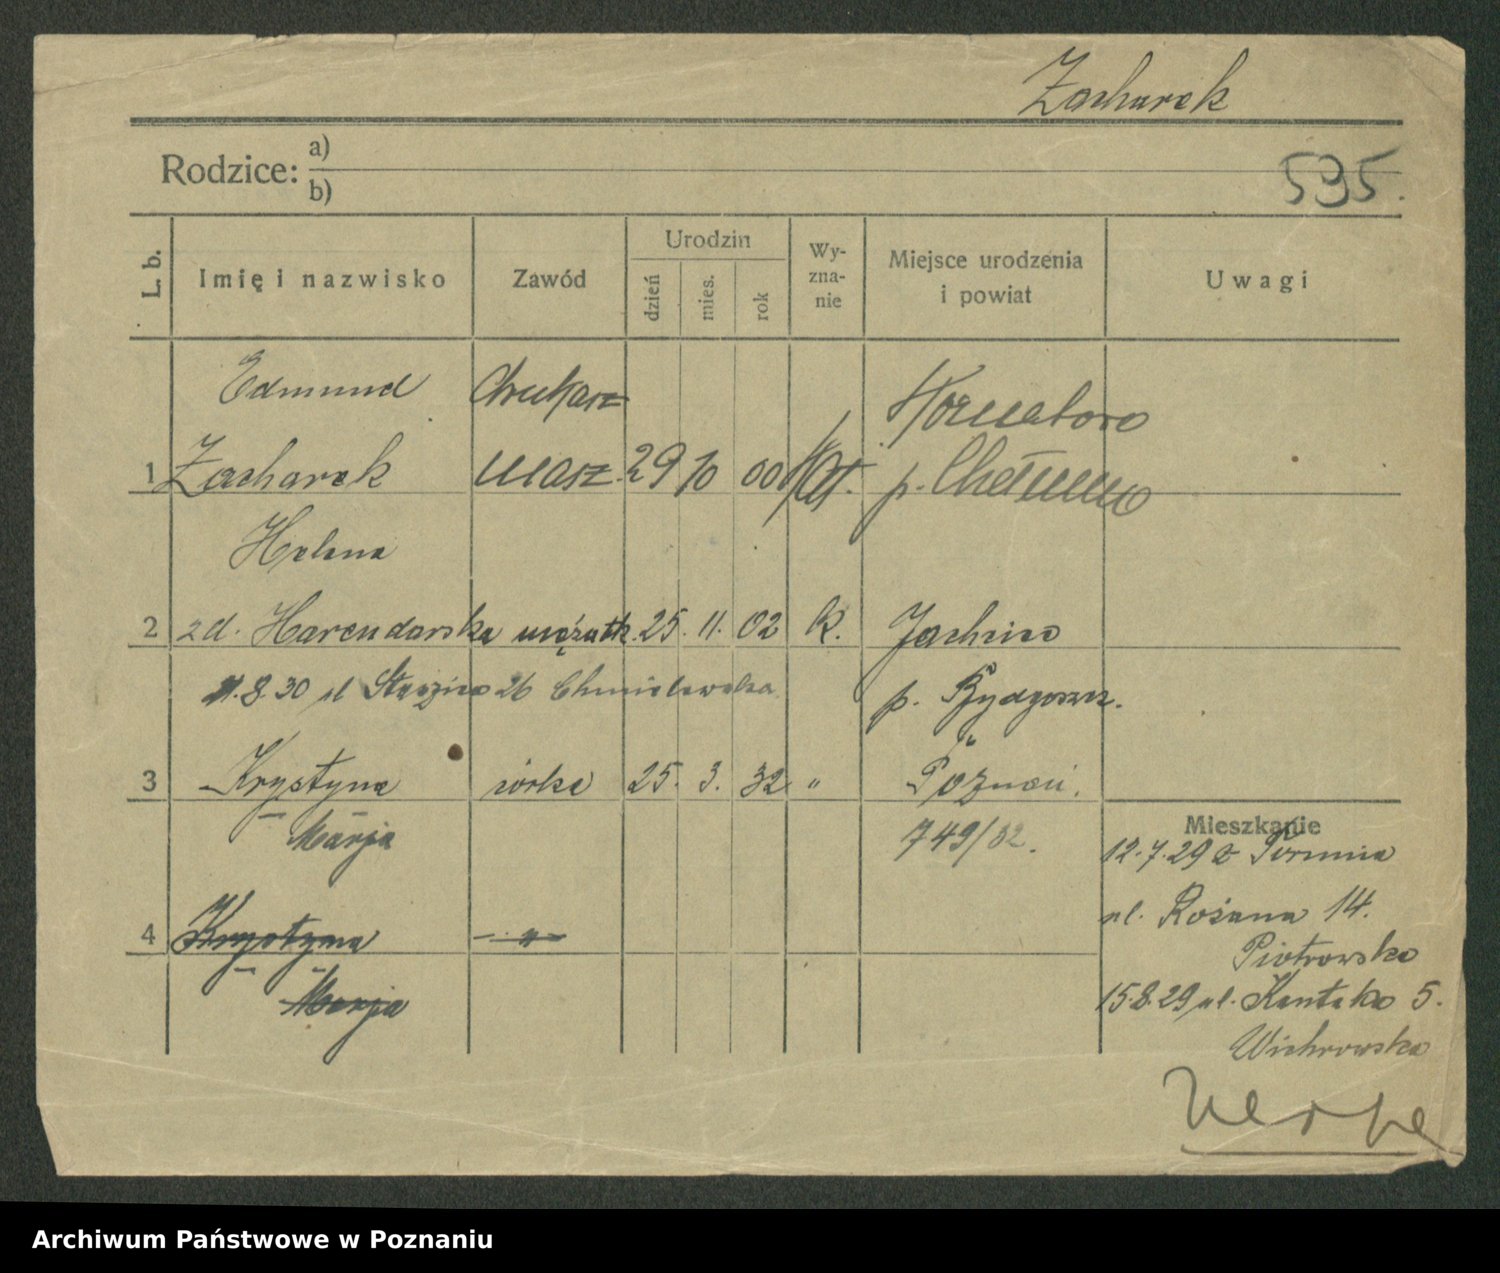 Zacharek
Rodzice: a)
b)
595.
L. b.
Imię i nazwisko
Zawód
Urodzin
dzień
mies.
rok
Wy-
zna-
nie
Miejsce urodzenia
i powiat
Uwagi
Edmund Drukarz
1 Zacharek masz. 29 10 00 Kat. p. Chełmno
Helena
2 zd. Harendarska mężatk. 25. 11. 02 K. Jachcice
21.8.30 ul Staszica 26 Chmielewska p. Bydgoszcz.
3 Krystyna córka 25. 3. 32 " Poznań.
Marja 749/32.
4 Krystyna — " —
Marja
Mieszkanie
12.7.29 z Torunia
ul. Rożana 14.
Piotrowska
15.8.29 ul. Kantaka 5.
Wichrowska
Archiwum Państwowe w Poznaniu